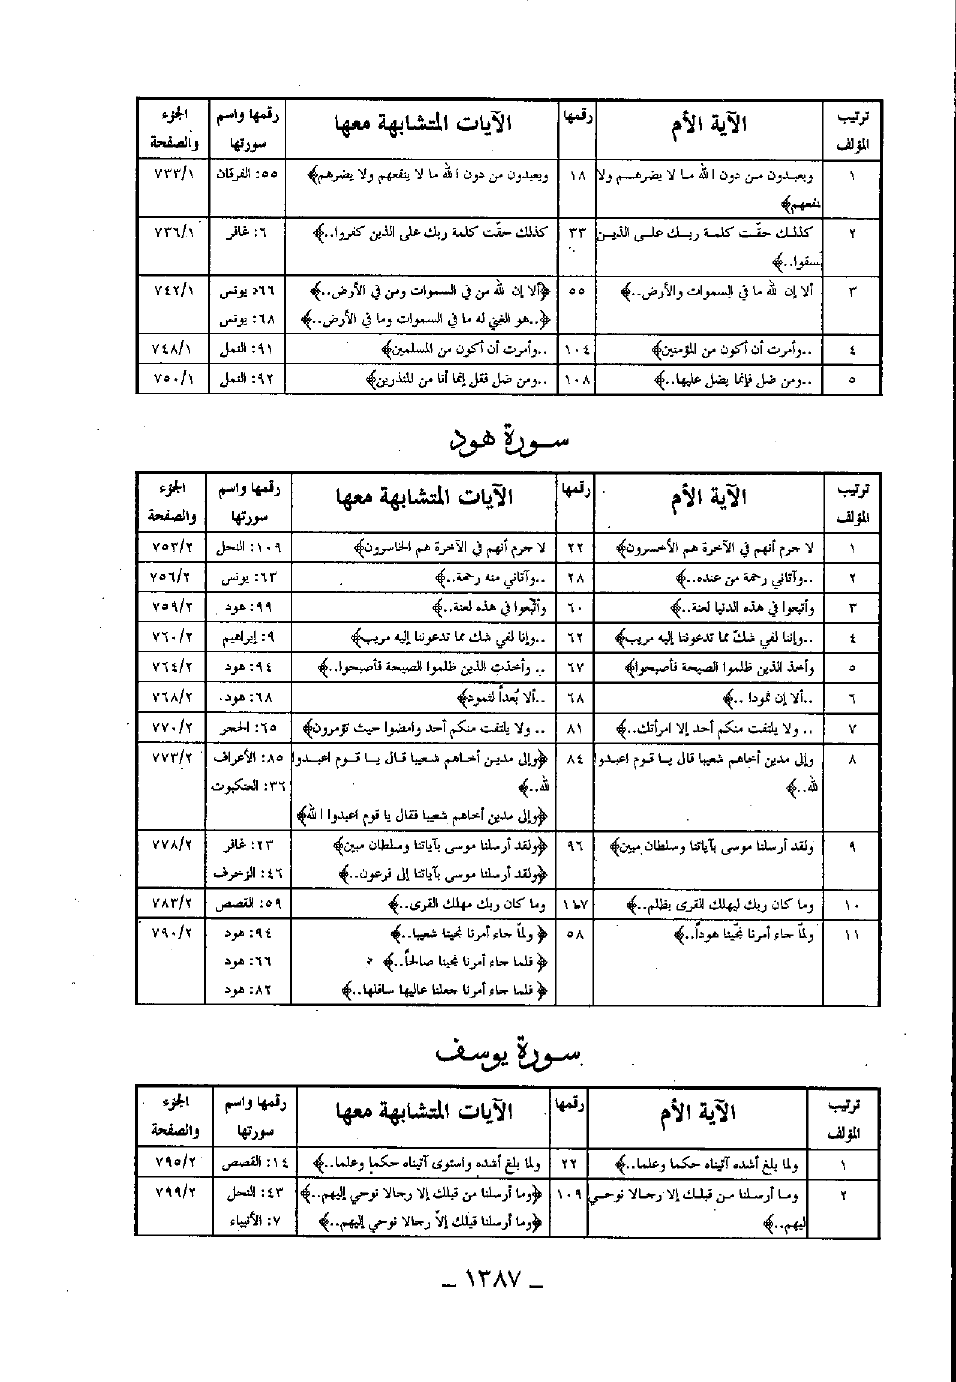 ترتيب المؤلف | الآية الأم | رقمها | الآيات المتشابهة معها | رقمها واسم سورتها | الجزء والصفحة
١ | ويعبدون من دون الله ما لا يضرهم ولا ينفعهم﴾ | ١٨ | ويعبدون من دون الله ما لا ينفعهم ولا يضرهم﴾ | ٥٥: الفرقان | ٧٣٣/١
٢ | كذلك حقّت كلمة ربك على الذين فسقوا..﴾ | ٣٣ | كذلك حقّت كلمة ربك على الذين كفروا..﴾ | ٦: غافر | ٧٣٦/١
٣ | ألا إن لله ما في السموات والأرض..﴾ | ٥٥ | ﴿ألا إن لله من في السموات ومن في الأرض..﴾ | ٦٦: يونس | ٧٤٢/١
﴿..هو الغني له ما في السموات وما في الأرض..﴾ | ٦٨: يونس
٤ | ..وأمرت أن أكون من المؤمنين﴾ | ١٠٤ | ..وأمرت أن أكون من المسلمين﴾ | ٩١: النمل | ٧٤٨/١
٥ | ..ومن ضل فإنما يضل عليها..﴾ | ١٠٨ | ..ومن ضل فقل إنما أنا من المنذرين﴾ | ٩٢: النمل | ٧٥٠/١
سورة هود
ترتيب المؤلف | الآية الأم | رقمها | الآيات المتشابهة معها | رقمها واسم سورتها | الجزء والصفحة
١ | لا جرم أنهم في الآخرة هم الأخسرون﴾ | ٢٢ | لا جرم أنهم في الآخرة هم الخاسرون﴾ | ١٠٩: النحل | ٧٥٣/٢
٢ | ..وآتاني رحمة من عنده..﴾ | ٢٨ | ..وآتاني منه رحمة..﴾ | ٦٣: يونس | ٧٥٦/٢
٣ | وأتبعوا في هذه الدنيا لعنة..﴾ | ٦٠ | وأتبعوا في هذه لعنة..﴾ | ٩٩: هود | ٧٥٩/٢
٤ | ..وإننا لفي شكّ مما تدعوننا إليه مريب﴾ | ٦٢ | ..وإنا لفي شك مما تدعوننا إليه مريب﴾ | ٩: إبراهيم | ٧٦٠/٢
٥ | وأخذ الذين ظلموا الصيحة فأصبحوا﴾ | ٦٧ | .. وأخذت الذين ظلموا الصيحة فأصبحوا..﴾ | ٩٤: هود | ٧٦٤/٢
٦ | ..ألا إن ثمودا ..﴾ | ٦٨ | ..ألا بُعداً لثمود﴾ | ٦٨: هود. | ٧٦٨/٢
٧ | .. ولا يلتفت منكم أحد إلا امرأتك..﴾ | ٨١ | .. ولا يلتفت منكم أحد وامضوا حيث تؤمرون﴾ | ٦٥: الحجر | ٧٧٠/٢
٨ | وإلى مدين أخاهم شعيبا قال يا قوم اعبدوا الله..﴾ | ٨٤ | ﴿وإلى مدين أخاهم شعيبا قال يا قوم اعبدوا الله..﴾ | ٨٥: الأعراف | ٧٧٣/٢
﴿وإلى مدين أخاهم شعيبا فقال يا قوم اعبدوا الله﴾ | ٣٦: العنكبوت
٩ | ولقد أرسلنا موسى بآياتنا وسلطان مبين﴾ | ٩٦ | ﴿ولقد أرسلنا موسى بآياتنا وسلطان مبين﴾ | ٢٣: غافر | ٧٧٨/٢
﴿ولقد أرسلنا موسى بآياتنا إلى فرعون..﴾ | ٤٦: الزخرف
١٠ | وما كان ربك ليهلك القرى بظلم..﴾ | ١١٧ | وما كان ربك مهلك القرى..﴾ | ٥٩: القصص | ٧٨٣/٢
١١ | ولمّا جاء أمرنا نجّينا هوداً..﴾ | ٥٨ | ﴿ ولمّا جاء أمرنا نجينا شعيبا..﴾ | ٩٤: هود | ٧٩٠/٢
﴿ فلما جاء أمرنا نجينا صالحاً..﴾ | ٦٦: هود
﴿ فلما جاء أمرنا جعلنا عاليها سافلها..﴾ | ٨٢: هود
سورة يوسف
ترتيب المؤلف | الآية الأم | رقمها | الآيات المتشابهة معها | رقمها واسم سورتها | الجزء والصفحة
١ | ولما بلغ أشده آتيناه حكما وعلما..﴾ | ٢٢ | ولما بلغ أشده واستوى آتيناه حكما وعلما..﴾ | ١٤: القصص | ٧٩٥/٢
٢ | وما أرسلنا من قبلك إلا رجالا نوحي إليهم..﴾ | ١٠٩ | ﴿وما أرسلنا من قبلك إلا رجالا نوحي إليهم..﴾ | ٤٣: النحل | ٧٩٩/٢
﴿وما أرسلنا قبلك إلاّ رجالا نوحي إليهم..﴾ | ٧: الأنبياء
_ ١٣٨٧ _